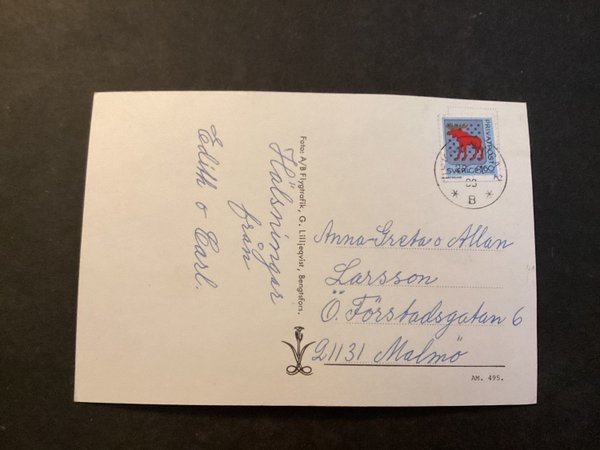 Hälsningar
från
Edith o Carl.
Foto: A/B Flygtrafik, G. Lilljeqvist, Bengtsfors.
PRIVATPOST
SVERIGE 160
83
* B *
Anna-Greta o Allan
Larsson
Ö. Förstadsgatan 6
21131 Malmö
AM. 495.